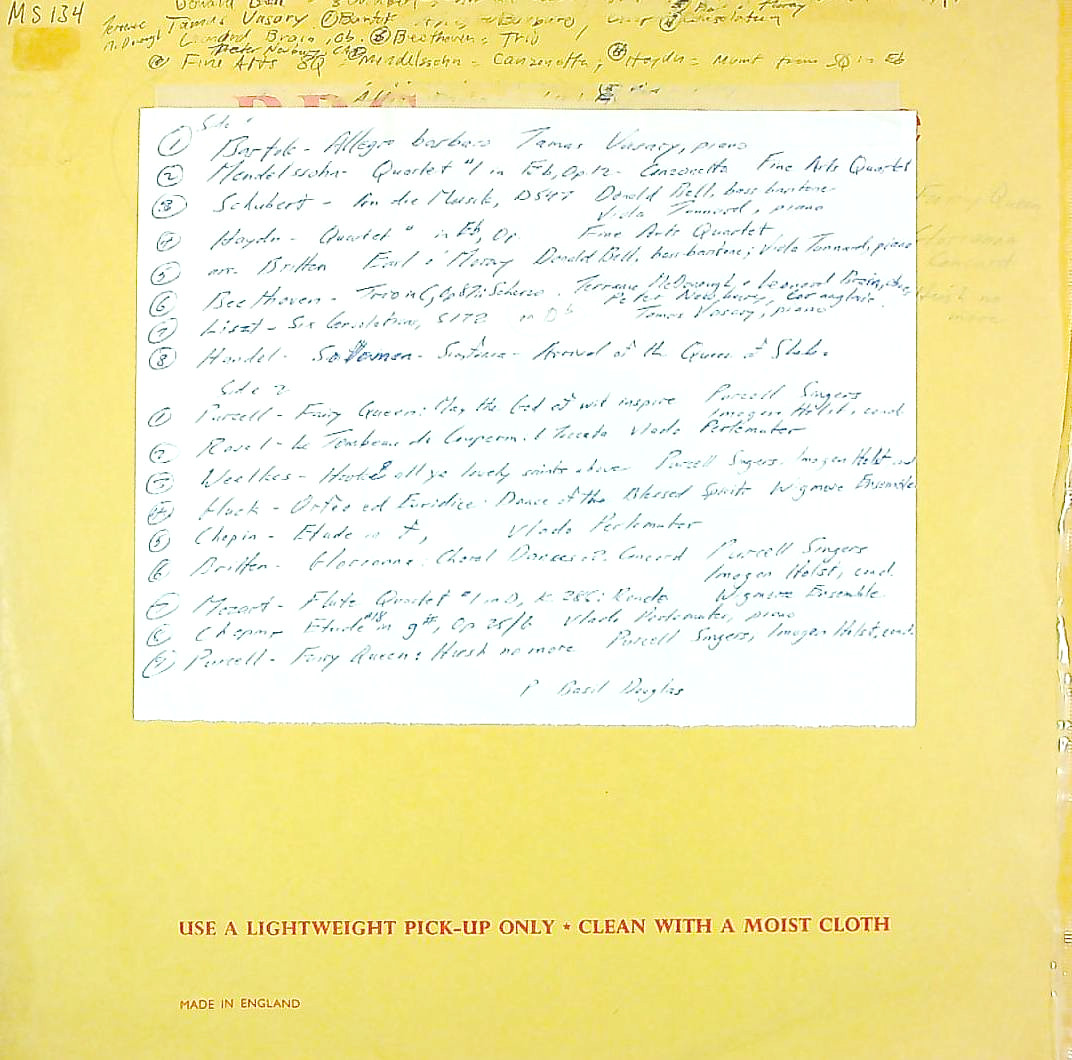 MS 134
Donald Bell
Tamas Vasary ① Bartok
Leonard Brain, Ob. ③ Beethoven = Trio
Peter Newbury
Fine Arts SQ Mendelssohn - Canzonetta; ④ Haydn = Mvmt from SQ in Eb
Side 1
① Bartok - Allegro barbaro Tamas Vasary, piano
② Mendelssohn - Quartet #1 in Eb, Op 12 - Canzonetta Fine Arts Quartet
③ Schubert - An die Musik, D547 Donald Bell, bass baritone
Viola Tunnard, piano
④ Haydn - Quartet # in Eb, Op. Fine Arts Quartet
⑤ arr. Britten Donald Bell, bass-baritone; Viola Tunnard, piano
⑥ Beethoven - Trio in C, Op 87: Scherzo. Terrance McDonagh, & Leonard Brain, oboe,
Peter Newbury, Cor anglais.
⑦ Liszt - Six Consolations, S172 in Db Tamas Vasary, piano
⑧ Handel - Solomon - Sinfonia - Arrival of the Queen of Sheba.
Side 2
① Purcell - Fairy Queen: May the God of wit inspire Purcell Singers
Imogen Holst, cond.
② Ravel - Le Tombeau de Couperin: Toccata Vlado Perlemuter
③ Weelkes - Hark all ye lovely saints above Purcell Singers, Imogen Holst, cond
④ Gluck - Orfeo ed Euridice: Dance of the Blessed Spirits Wigmore Ensemble
⑤ Chopin - Etude in f, Vlado Perlemuter
⑥ Britten - Gloriana: Choral Dances: 2. Concord Purcell Singers
Imogen Holst, cond.
⑦ Mozart - Flute Quartet #1 in D, K. 285: Rondo Wigmore Ensemble
⑧ Chopin - Etude #18 in g#, Op 25/6 Vlado Perlemuter, piano
⑨ Purcell - Fairy Queen: Hush no more Purcell Singers, Imogen Holst, cond.
P Basil Douglas
Fairy Queen
Gloriana
Concord
Hush no
more
USE A LIGHTWEIGHT PICK-UP ONLY ★ CLEAN WITH A MOIST CLOTH
MADE IN ENGLAND